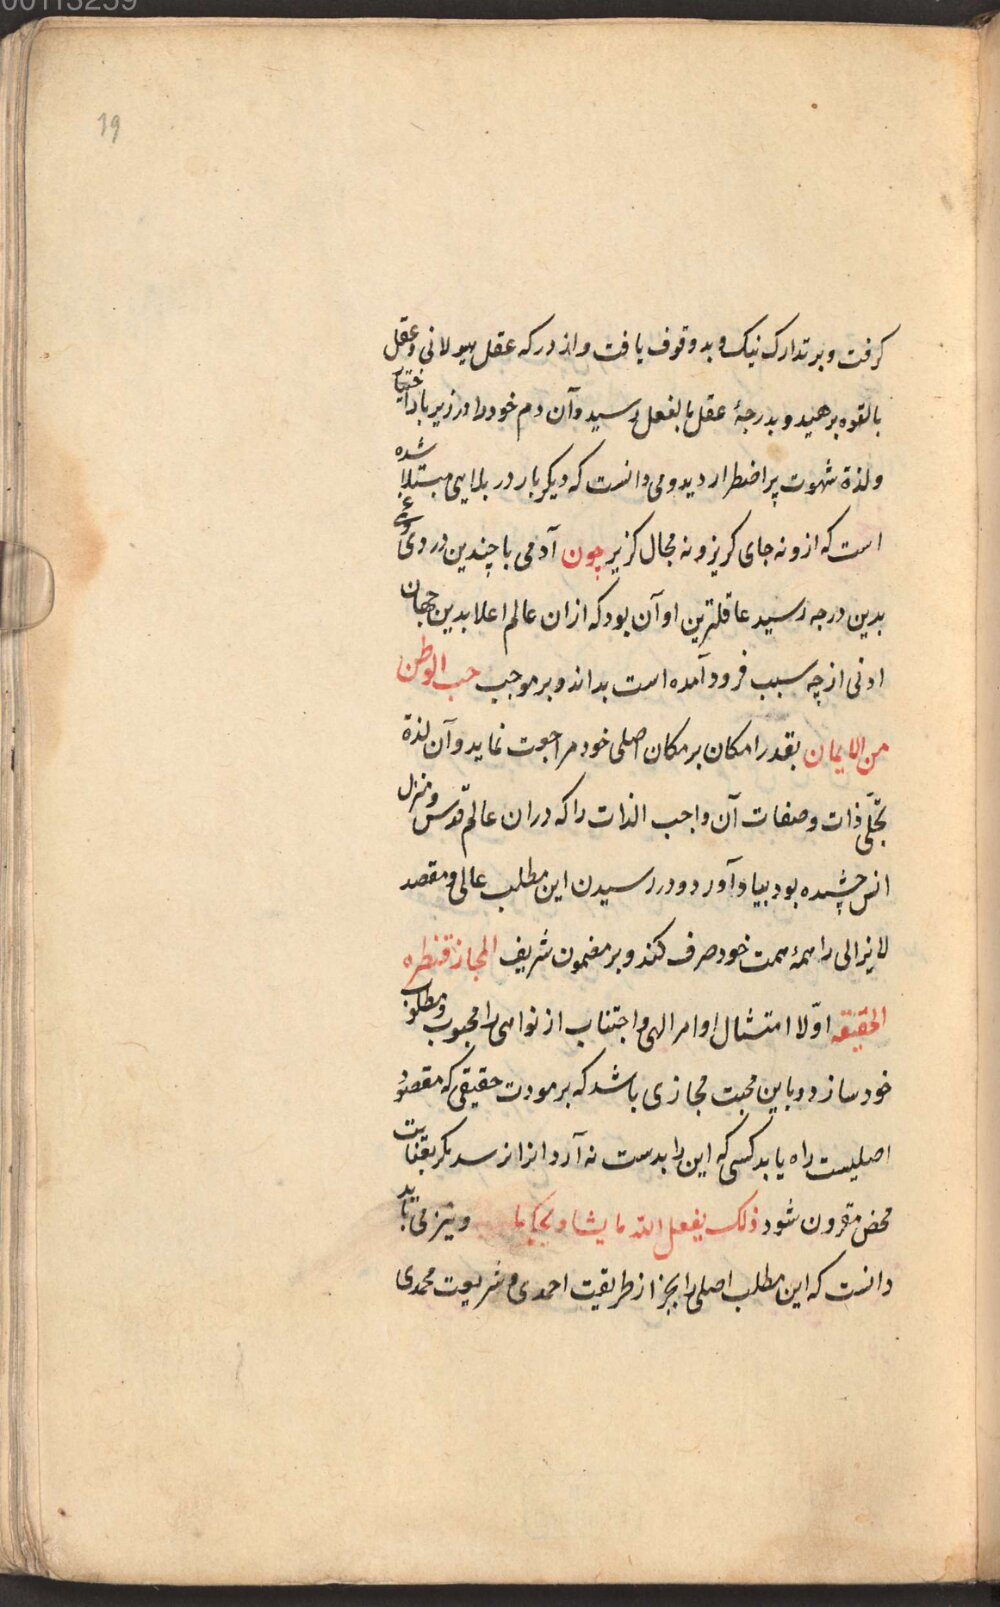 00113259
19
کرفت و بر تدارک نیک و بد وقوف یافت و از درکه عقل هیولانی و عقل
بالقوه برهید و بدرجهٔ عقل بالفعل رسید و آن دم خود را در زیر بار اختیار
و لذة شهوت پر اضطرار دید و می دانست که دیکر بار در بلایی مبتلا شده
است که ازو نه جای کریز و نه مجال کزیر چون آدمی با چندین در دی
بدین درجه رسید عاقلترین او آن بود که ازان عالم اعلا بدین جهان
ادنی از چه سبب فرود آمده است بداند و بر موجب حب الوطن
من الایمان بقدر امکان بر مکان اصلی خود مراجوت نماید و آن لذة
تجلّی ذات و صفات آن واجب الذات را که دران عالم قدس و منزل
انس چشیده بود بیاد آورد و در رسیدن این مطلب عالی و مقصد
لایزالی را همهٔ همت خود صرف کند و بر مضمون شریف المجاز قنطره
الحقیقه اوّلا امتثال اوامر الهی و اجتناب از نواهی را محبوب و مطلوب
خود سازد و باین محبت مجازی باشد که بر مودت حقیقی که مقصود
اصلیست راه یابد کسی که این را بدست نه آرد انرا نرسد مکر بعنایت
محض مقرون شود ذلک یفعل الله ما یشا و یحکم ما و نیز می باید
دانست که این مطلب اصلی را بجز از طریقت احمدی و شریعت محمدی